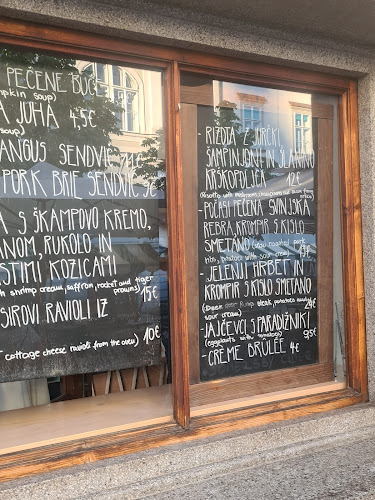 PEČENE BUČE
(pumpkin soup)
A JUHA 4,5€
soup)
ANGUS SENDVIČ
PORK BRIE SENDVIČ
A S ŠKAMPOVO KREMO,
ANOM, RUKOLO IN
STIMI KOZICAMI
th shrimp cream, saffron, rocket and tiger
prawns) 15€
SIROVI RAVIOLI IZ
10€
cottage cheese ravioli from the oven)
- RIŽOTA Z JURČKI,
ŠAMPINJONI IN
12€
(Risotto with mushrooms, champignons and
- POČASI PEČENA SVINJSKA
REBRA, KROMPIR S KISLO
SMETANO (slow roasted pork
ribs, potato with sour cream)
- JELENJI HRBET IN
KROMPIR S KISLO SMETANO
(Deer steak, potatoes and
sour cream)
- JAJČEVCI S PARADIŽNIKI
(eggplants with tomatoes) 9,5€
- CRÈME BRÛLÉE 4€